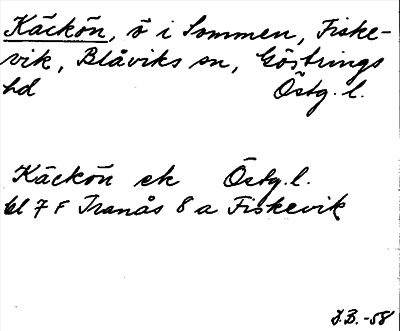 Käckön, ö i Sommen, Fiske-
vik, Blåviks sn, Göstrings
hd Östg. l.
Käckön ek Östg. l.
bl 7 F Tranås 8 a Fiskevik
J.B. -58